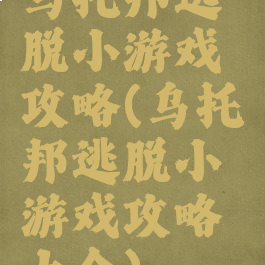 乌托邦逃
脱小游戏
攻略(乌托
邦逃脱小
游戏攻略
大全)